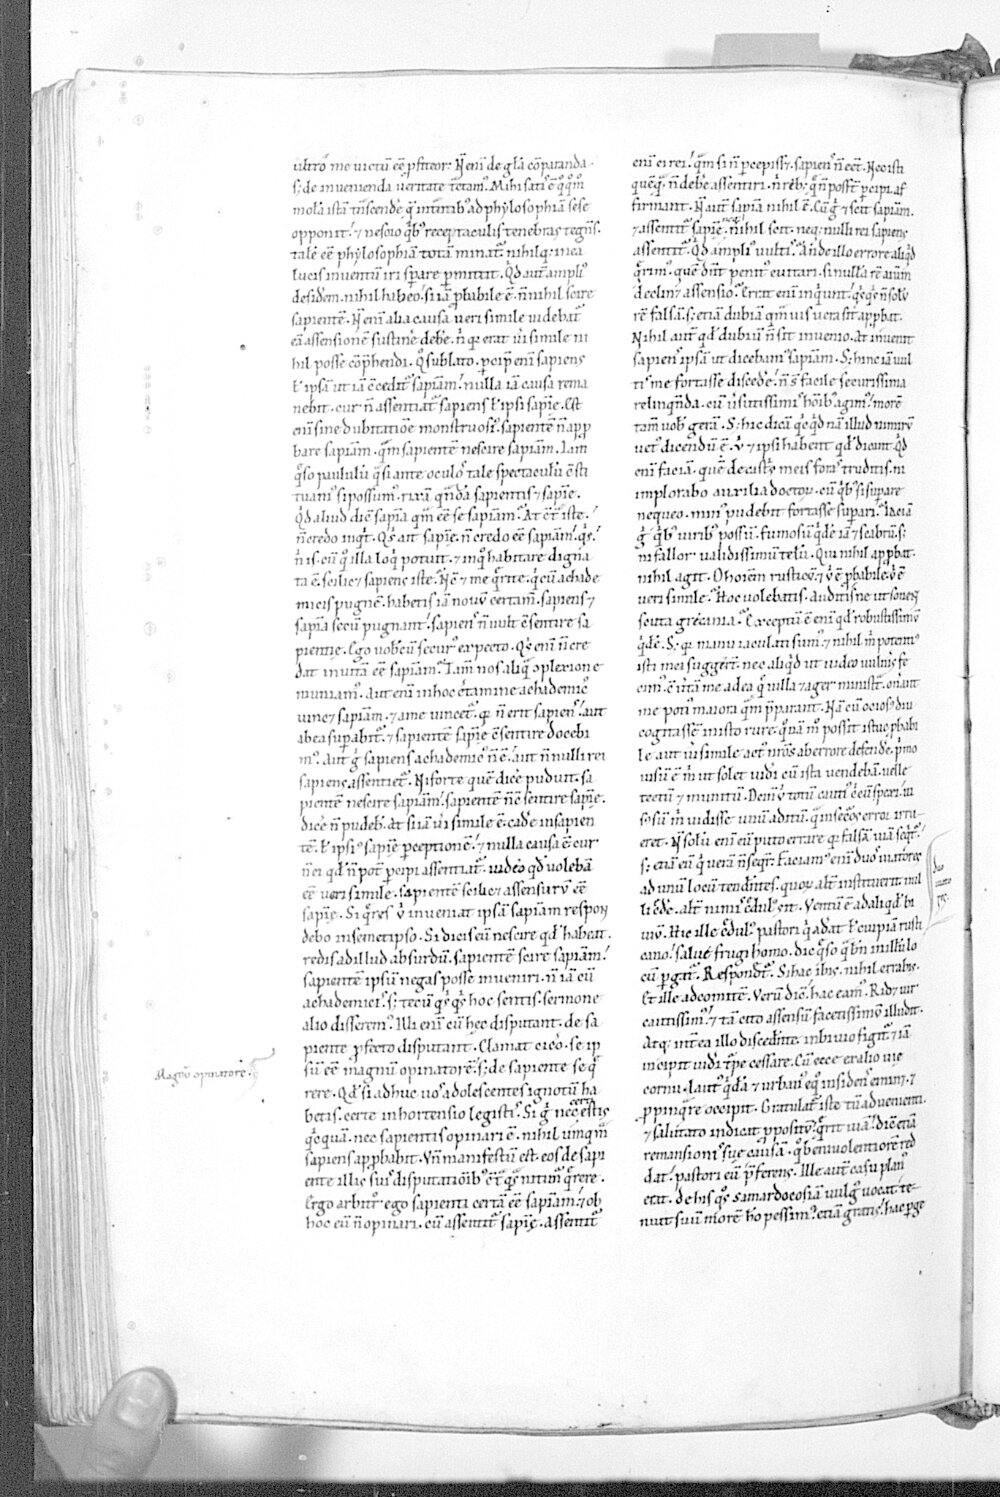 ultro me uictū eē ꝓfiteor. N̄ enī de gl̄a cōparanda.
s; de inuenienda ueritate t̄tam᷒. Mihi sati᷒ ē q̄q̄m
mola istā tn̄scende q̄ intrātib᷒ ad phylosophiā sese
opponit. ⁊ nescio qⁱb᷒ receptaculis tenebras
talē eē phylosophiā totā minat᷒. nihilq; in ea
lucis inueniri sperare permittit. Qd̄ aut̄ ampli᷒
desiderem nihil habeo. si iā ꝓbabile ē. n̄ nihil scire
sapientē. N̄ enī alia causa ueri simile uidebat᷒
eā assensionē sustinere debere. n̄ qr̄ erat ūi simile ni
hil posse cōprehendi. Qo sublato. percipit enī sapiens
ł ipsā ut iā c̄cedit᷒ sapiam. nulla iā causa rema
nebit. cur n̄ assentiat᷒ sapiens ł ipsi sapiē. Est
enī sine dubitatiōe monstruosi᷒. sapientē n̄ app
bare sapiam. qm̄ sapientē nescire sapiam. Iam
qo paululū qͣsi ante oculo᷒ tale spectaculū c̄sti
tuam᷒ si possum᷒. rixā quādā sapientis ⁊ sapiē.
Qd̄ aliud dicit sapiā qm̄ eē se sapiam. At c̄tͣ iste.
n̄ credo inqt. Qⁱs ait sapiē. n̄ credo eē sapiam. qⁱs.
nⁱ is. cū qͦ illa loqⁱ potuit. ⁊ in qͦ habitare digna
ta ē. scilic ⁊ sapiens iste. Ite ⁊ me qrite. qⁱ cū achade
micis pugnē. habetis iā nouū certam̄. sapiens ⁊
sapia secū pugnant. sapiens n̄ uult c̄sentire sa
pientie. Ego uobcū secur᷒ expecto. Qⁱs enī n̄ cre
dat inuictā eē sapiam. Tam̄ nos aliqͣ c̄plexione
muniam᷒. Aut enī in hoc c̄tamine achademic᷒
uinc̄ ⁊ sapiam. ⁊ a me uincet᷒. qr̄ n̄ erit sapiens. aut
ab ea superabit᷒. ⁊ sapientē sapiē c̄sentire docebi
m᷒. Aut g̊ sapiens achademic᷒ n̄ ē. aut n̄ nulli rei
sapiens assentiet᷒. Ni forte quē dicere puduit. sa
pientē nescire sapiam. sapientē n̄ c̄sentire sapiē.
dicere n̄ pudebit. At si iā ūi simile ē. cadere in sapien
tē. ł ipsi᷒ sapiē perceptionē. ⁊ nulla causa ē cur
n̄ ei qd̄ n̄ pōt percipi assentiat᷒. uideo qd̄ uolebā
eē ueri simile. sapientē scilic assensurū eē
sapiē. Si qres ubi inueniat ipsā sapiam respon
debo in semetipso. Si dicis eū nescire qd̄ habeat.
redis ad illud absurdū. sapientē scire sapiam.
sapientē ipsū negas posse inueniri. n̄ iā cū
achademici᷒. s; tecū qⁱsqⁱs hoc sentis. sermone
alio disserem᷒. Illi enī cū hec disputant. de sa
piente ꝓfecto disputant. Clamat cicero. se ip
sū eē magnū opinatorē. s; de sapiente se q
rere. Qd̄ si adhuc uos adolescentes ignotū ha
betis. certe in hortensio legisti᷒. Si g̊ nec certi est
qͥcquā. nec sapientis opinari ē. nihil unqm̄
sapiens approbabit. Vn̄ manifestū est. eos de sapi
ente illis suis disputatiōib᷒ c̄t. qͣs nitim᷒ qrere.
Ergo arbitror ego sapienti certā eē sapiam. ⁊ ob
hoc eū n̄ opinari. cū assentit᷒ sapiē. Assentit᷒
Magnū opinatorē.
enī ei rei. qm̄ si n̄ percepisset. sapiens n̄ eēt. Nec isti
quēq; n̄ debere assentiri. nⁱ reb;. qͣ n̄ possunt percipi. af
firmant. N̄ aut̄ sapia nihil ē. Cū g̊ ⁊ scit sapiam.
⁊ assentit᷒ sapiē. n̄ nihil scit. neq; nulli rei sapiens
assentit᷒. Qd̄ ampli᷒ uultis. An de illo errore aliqd̄
qrim᷒. quē dn̄t penit᷒ euitari. si nulla rē animū
declinet assensio. Errat enī inqunt. qsqs n̄ solū
rē falsā. s; etiā dubiā qmuis uera sit approbat.
Nihil aut̄ qd̄ dubiū n̄ sit inuenio. At inuenit
sapiens ipsā ut dicebam᷒ sapiam. S; hinc iā uul
tis me fortasse discedere. n̄ s̄ facile securissima
relinqnda. cū uersutissimis hōib᷒ agim᷒. morē
tam̄ uob᷒ gerā. S; hic dicā qͥd. qd̄ nā illud
uet᷒ dicendū ē. ubi ⁊ ipsi habent qd̄ dicant. Qd̄
enī faciā. quē de castris meis foras truditis. ni
implorabo auxilia doctor. cū qb᷒ si superare
nequeo. min᷒ pudebit fortasse superari. Iaciā
g̊ qb᷒ uirib᷒ possū. fumosū qdē iā ⁊ scabrū. s;
ni fallor ualidissimū telū. Qui nihil approbat.
nihil agit. O hoīem rusticū. ⁊ ubi ē ꝓbabile. ubi ē
ueri simile. Hoc uolebatis. Auditisne ut sonent
scuta grecania. Exceptū ē enī qd̄ robustissimū
qdē. S; qͣ manu iaculati sum᷒. ⁊ nihil m̄ potenti᷒
isti mei suggerunt. nec aliqd̄ ut uideo uulneris fe
cim᷒. c̄uertā me ad ea qͣ uilla ⁊ ager ministrat. onerant
me poti᷒ maiora qm̄ preparant. Nā cū ocios᷒ diu
cogitassē in isto rure. qͣnā m᷒ possit istuc ꝓbabi
le aut ūi simile act᷒ nr̄os ab errore defendere. primo
uisū ē m̄ ut solet uideri cū ista uendebā. uelle
tectū ⁊ munitū. Dein̄ ubi totū cauti᷒ c̄cuspexi. ui
s᷒ sū m̄ uidisse unū aditū. qͣ in secuos error irru
eret. N̄ solū enī eū puto errare qͥ falsā uiā seqt᷒.
s; etiā eū qͥ uerā n̄ seqt᷒. Faciam᷒ enī duos uiatores
ad unū locū tendentes. quor alt̄ instituerit nul
li credere. alt̄ nimis credul᷒ erit. Ventū ē ad aliqd̄ bi
uiū. Hic ille credul᷒. pastori qͥ aderat ł cuipiā rusti
cano. salue frugi homo. dic qͣso qͣ bn̄ in illū lo
cū pergat᷒. Respondet᷒. Si hac ibis. nihil errabis.
Et ille ad comitē. Verū dicit. hac eam᷒. Ridet uir
cautissim᷒. ⁊ tā cito assensū facetissime illudit.
Atq; int̄ea illo discedente. in biuio figit᷒. ⁊ iā
incipit uideri t̄pe cessare. Cū ecce ex alio uie
cornu. lautus qͥdā ⁊ urban᷒ equo insidens eminet. ⁊
ꝓpinqre occipit. Gratulat᷒ iste tū aduenienti.
⁊ salutato indicat ꝓpositū. qrit uiā. dicit etiā
remansionis sue causā. qͦ beniuolentiorē red
dat. pastori eū p̄ferens. Ille aut̄ casu plan᷒
erat. de his qͥs samardocos iā uulg᷒ uocat. te
nuit suū morē hō pessim᷒. etiā gratis. hac perge
duo
uiato
res